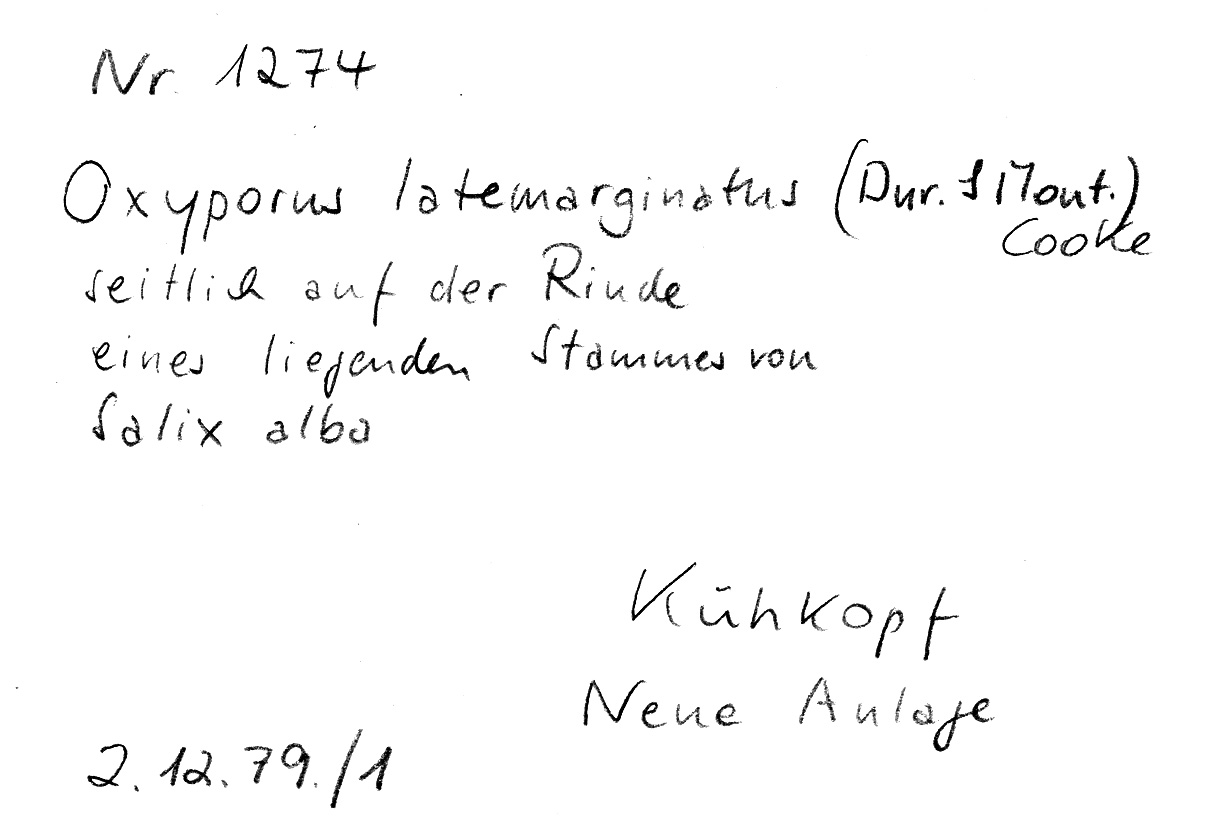 Nr. 1274
Oxyporus latemarginatus (Dur. & Mont.)
Cooke
seitlich auf der Rinde
eines liegenden Stammes von
Salix alba
Kühkopf
Neue Anlage
2.12.79./1